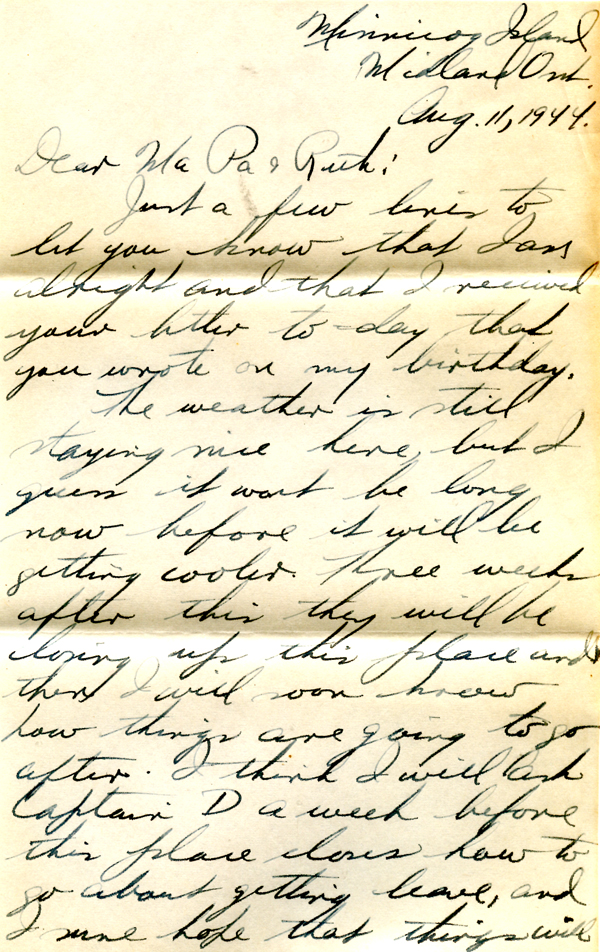 Minnicog Island
Midland Ont.
Aug. 11, 1944.
Dear Ma Pa & Ruth:
Just a few lines to
let you know that I am
alright and that I received
your letter to-day that
you wrote on my birthday.
The weather is still
staying nice here, but I
guess it wont be long
now before it will be
getting cooler. Three weeks
after this they will be
closing up this place and
then I will soon know
how things are going to go
after. I think I will ask
Captain D a week before
this place closes how to
go about getting leave, and
I sure hope that things will